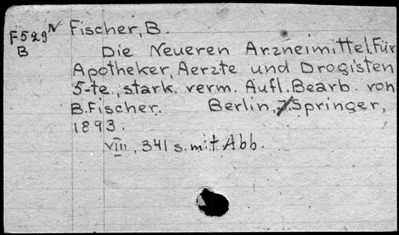 F529N Fischer, B.
B
Die Neueren Arzneimittel. Für
Apotheker, Aerzte und Drogisten
5-te, stark. verm. Aufl. Bearb. von
B. Fischer. Berlin, J. Springer,
1893.
VIII, 341 s. mit Abb.